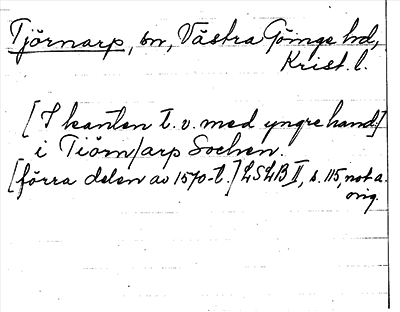 Tjörnarp, sn, Västra Göinge hd,
Krist. l.
[I kanten t. v. med yngre hand]
i Tiörn/arp Sochen.
[förra delen av 1570-t.] LSLB II, s. 115, not a.
orig.